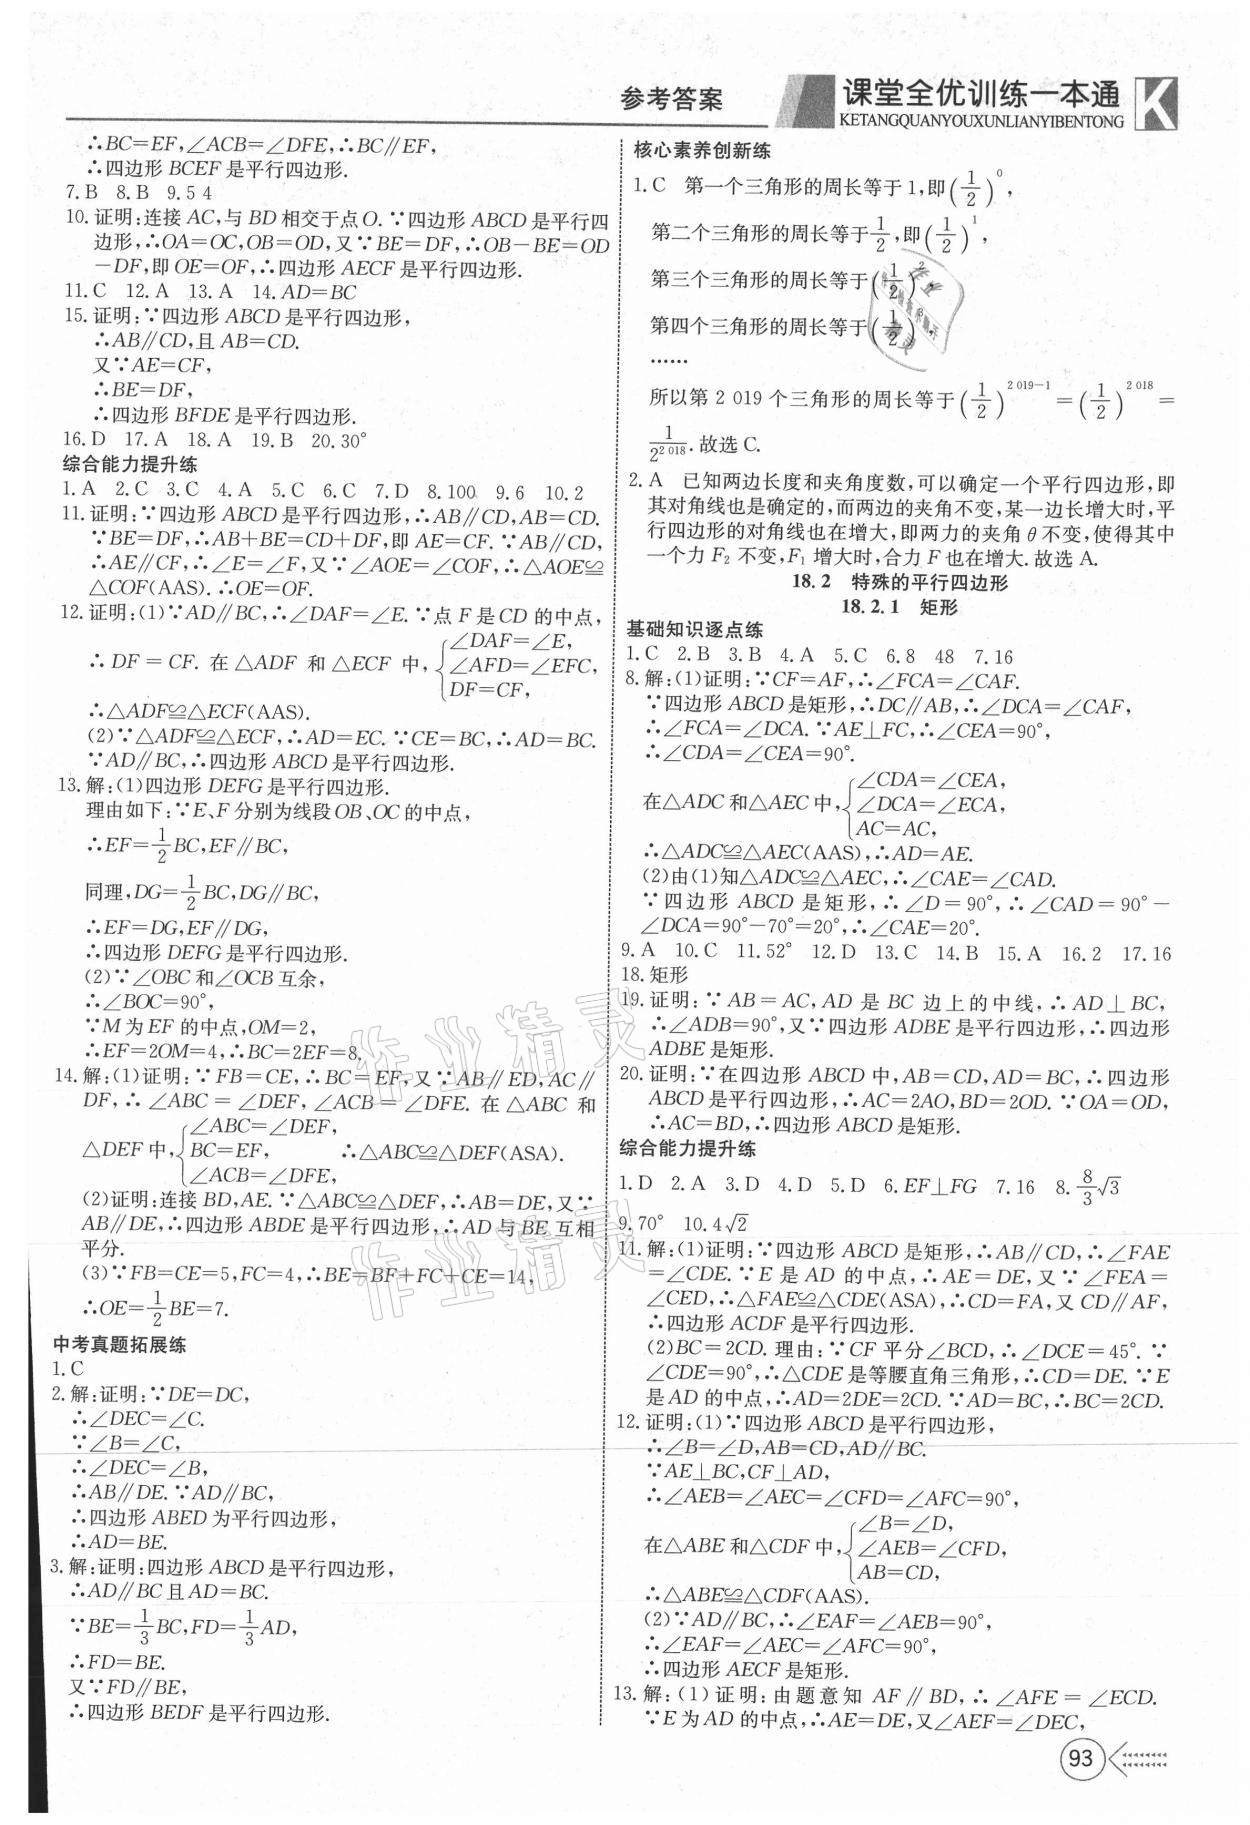 参考答案
课堂全优训练一本通
KETANGQUANYOUXUNLIANYIBENTONG
K
∴BC=EF,∠ACB=∠DFE,∴BC∥EF,
∴四边形 BCEF 是平行四边形.
7.B 8.B 9.5 4
10.证明:连接 AC,与 BD 相交于点O.∵四边形 ABCD 是平行四
边形,∴OA=OC,OB=OD,又∵BE=DF,∴OB-BE=OD
-DF,即 OE=OF,∴四边形 AECF 是平行四边形.
11.C 12.A 13.A 14.AD=BC
15.证明:∵四边形 ABCD 是平行四边形,
∴AB∥CD,且 AB=CD.
又∵AE=CF,
∴BE=DF,
∴四边形 BFDE 是平行四边形.
16.D 17.A 18.A 19.B 20.30°
综合能力提升练
1.A 2.C 3.C 4.A 5.C 6.C 7.D 8.100 9.6 10.2
11.证明:∵四边形 ABCD 是平行四边形,∴AB∥CD,AB=CD.
∵BE=DF,∴AB+BE=CD+DF,即 AE=CF.∵AB∥CD,
∴AE∥CF,∴∠E=∠F,又∵∠AOE=∠COF,∴△AOE≌
△COF(AAS).∴OE=OF.
12.证明:(1)∵AD∥BC,∴∠DAF=∠E.∵点 F 是CD 的中点,
∴ DF = CF. 在 △ADF 和 △ECF 中,{∠DAF=∠E,
∠AFD=∠EFC,
DF=CF,
∴△ADF≌△ECF(AAS).
(2)∵△ADF≌△ECF,∴AD=EC.∵CE=BC,∴AD=BC.
∵AD∥BC,∴四边形 ABCD 是平行四边形.
13.解:(1)四边形 DEFG 是平行四边形.
理由如下:∵E、F 分别为线段 OB、OC 的中点,
∴EF=1/2 BC,EF∥BC,
同理,DG=1/2 BC,DG∥BC,
∴EF=DG,EF∥DG,
∴四边形 DEFG 是平行四边形.
(2)∵∠OBC 和∠OCB 互余,
∴∠BOC=90°,
∵M 为 EF 的中点,OM=2,
∴EF=2OM=4,∴BC=2EF=8.
14.解:(1)证明:∵FB=CE,∴BC=EF,又∵AB∥ED,AC∥
DF,∴∠ABC=∠DEF,∠ACB=∠DFE. 在△ABC 和
△DEF 中,{∠ABC=∠DEF,
BC=EF, ∴△ABC≌△DEF(ASA).
∠ACB=∠DFE,
(2)证明:连接 BD,AE.∵△ABC≌△DEF,∴AB=DE,又∵
AB∥DE,∴四边形 ABDE 是平行四边形,∴AD 与 BE 互相
平分.
(3)∵FB=CE=5,FC=4,∴BE=BF+FC+CE=14,
∴OE=1/2 BE=7.
中考真题拓展练
1.C
2.解:证明:∵DE=DC,
∴∠DEC=∠C.
∵∠B=∠C,
∴∠DEC=∠B,
∴AB∥DE.∵AD∥BC,
∴四边形 ABED 为平行四边形,
∴AD=BE.
3.解:证明:四边形 ABCD 是平行四边形,
∴AD∥BC 且 AD=BC.
∵BE=1/3 BC,FD=1/3 AD,
∴FD=BE.
又∵FD∥BE,
∴四边形 BEDF 是平行四边形.
核心素养创新练
1.C 第一个三角形的周长等于 1,即(1/2)^0,
第二个三角形的周长等于1/2,即(1/2)^1,
第三个三角形的周长等于(1/2)^2,
第四个三角形的周长等于(1/2)^3,
……
所以第 2 019 个三角形的周长等于(1/2)^(2 019-1)=(1/2)^(2 018)=
1/2^(2 018).故选 C.
2.A 已知两边长度和夹角度数,可以确定一个平行四边形,即
其对角线也是确定的,而两边的夹角不变,某一边长增大时,平
行四边形的对角线也在增大,即两力的夹角 θ 不变,使得其中
一个力 F₂ 不变,F₁ 增大时,合力 F 也在增大.故选 A.
18.2 特殊的平行四边形
18.2.1 矩形
基础知识逐点练
1.C 2.B 3.B 4.A 5.C 6.8 48 7.16
8.解:(1)证明:∵CF=AF,∴∠FCA=∠CAF.
∵四边形 ABCD 是矩形,∴DC∥AB,∴∠DCA=∠CAF,
∴∠FCA=∠DCA.∵AE⊥FC,∴∠CEA=90°,
∴∠CDA=∠CEA=90°.
在△ADC 和△AEC 中,{∠CDA=∠CEA,
∠DCA=∠ECA,
AC=AC,
∴△ADC≌△AEC(AAS),∴AD=AE.
(2)由(1)知△ADC≌△AEC,∴∠CAE=∠CAD.
∵四边形 ABCD 是矩形,∴∠D=90°,∴∠CAD=90°-
∠DCA=90°-70°=20°,∴∠CAE=20°.
9.A 10.C 11.52° 12.D 13.C 14.B 15.A 16.2 17.16
18.矩形
19.证明:∵AB=AC,AD 是 BC 边上的中线,∴AD⊥BC,
∴∠ADB=90°,又∵四边形 ADBE 是平行四边形,∴四边形
ADBE 是矩形.
20.证明:∵在四边形 ABCD 中,AB=CD,AD=BC,∴四边形
ABCD 是平行四边形,∴AC=2AO,BD=2OD.∵OA=OD,
∴AC=BD,∴四边形 ABCD 是矩形.
综合能力提升练
1.D 2.A 3.D 4.D 5.D 6.EF⊥FG 7.16 8.8/3√3
9.70° 10.4√2
11.解:(1)证明:∵四边形 ABCD 是矩形,∴AB∥CD,∴∠FAE
=∠CDE.∵E 是 AD 的中点,∴AE=DE,又∵∠FEA=
∠CED,∴△FAE≌△CDE(ASA),∴CD=FA,又 CD∥AF,
∴四边形 ACDF 是平行四边形.
(2)BC=2CD. 理由:∵CF 平分∠BCD,∴∠DCE=45°.∵
∠CDE=90°,∴△CDE 是等腰直角三角形,∴CD=DE.∵E
是 AD 的中点,∴AD=2DE=2CD.∵AD=BC,∴BC=2CD.
12.证明:(1)∵四边形 ABCD 是平行四边形,
∴∠B=∠D,AB=CD,AD∥BC.
∵AE⊥BC,CF⊥AD,
∴∠AEB=∠AEC=∠CFD=∠AFC=90°,
在△ABE 和△CDF 中,{∠B=∠D,
∠AEB=∠CFD,
AB=CD,
∴△ABE≌△CDF(AAS).
(2)∵AD∥BC,∴∠EAF=∠AEB=90°,
∴∠EAF=∠AEC=∠AFC=90°,
∴四边形 AECF 是矩形.
13.解:(1)证明:由题意知 AF∥BD,∴∠AFE=∠ECD.
∵E 为 AD 的中点,∴AE=DE,又∠AEF=∠DEC,
93
作业精灵
作业精灵